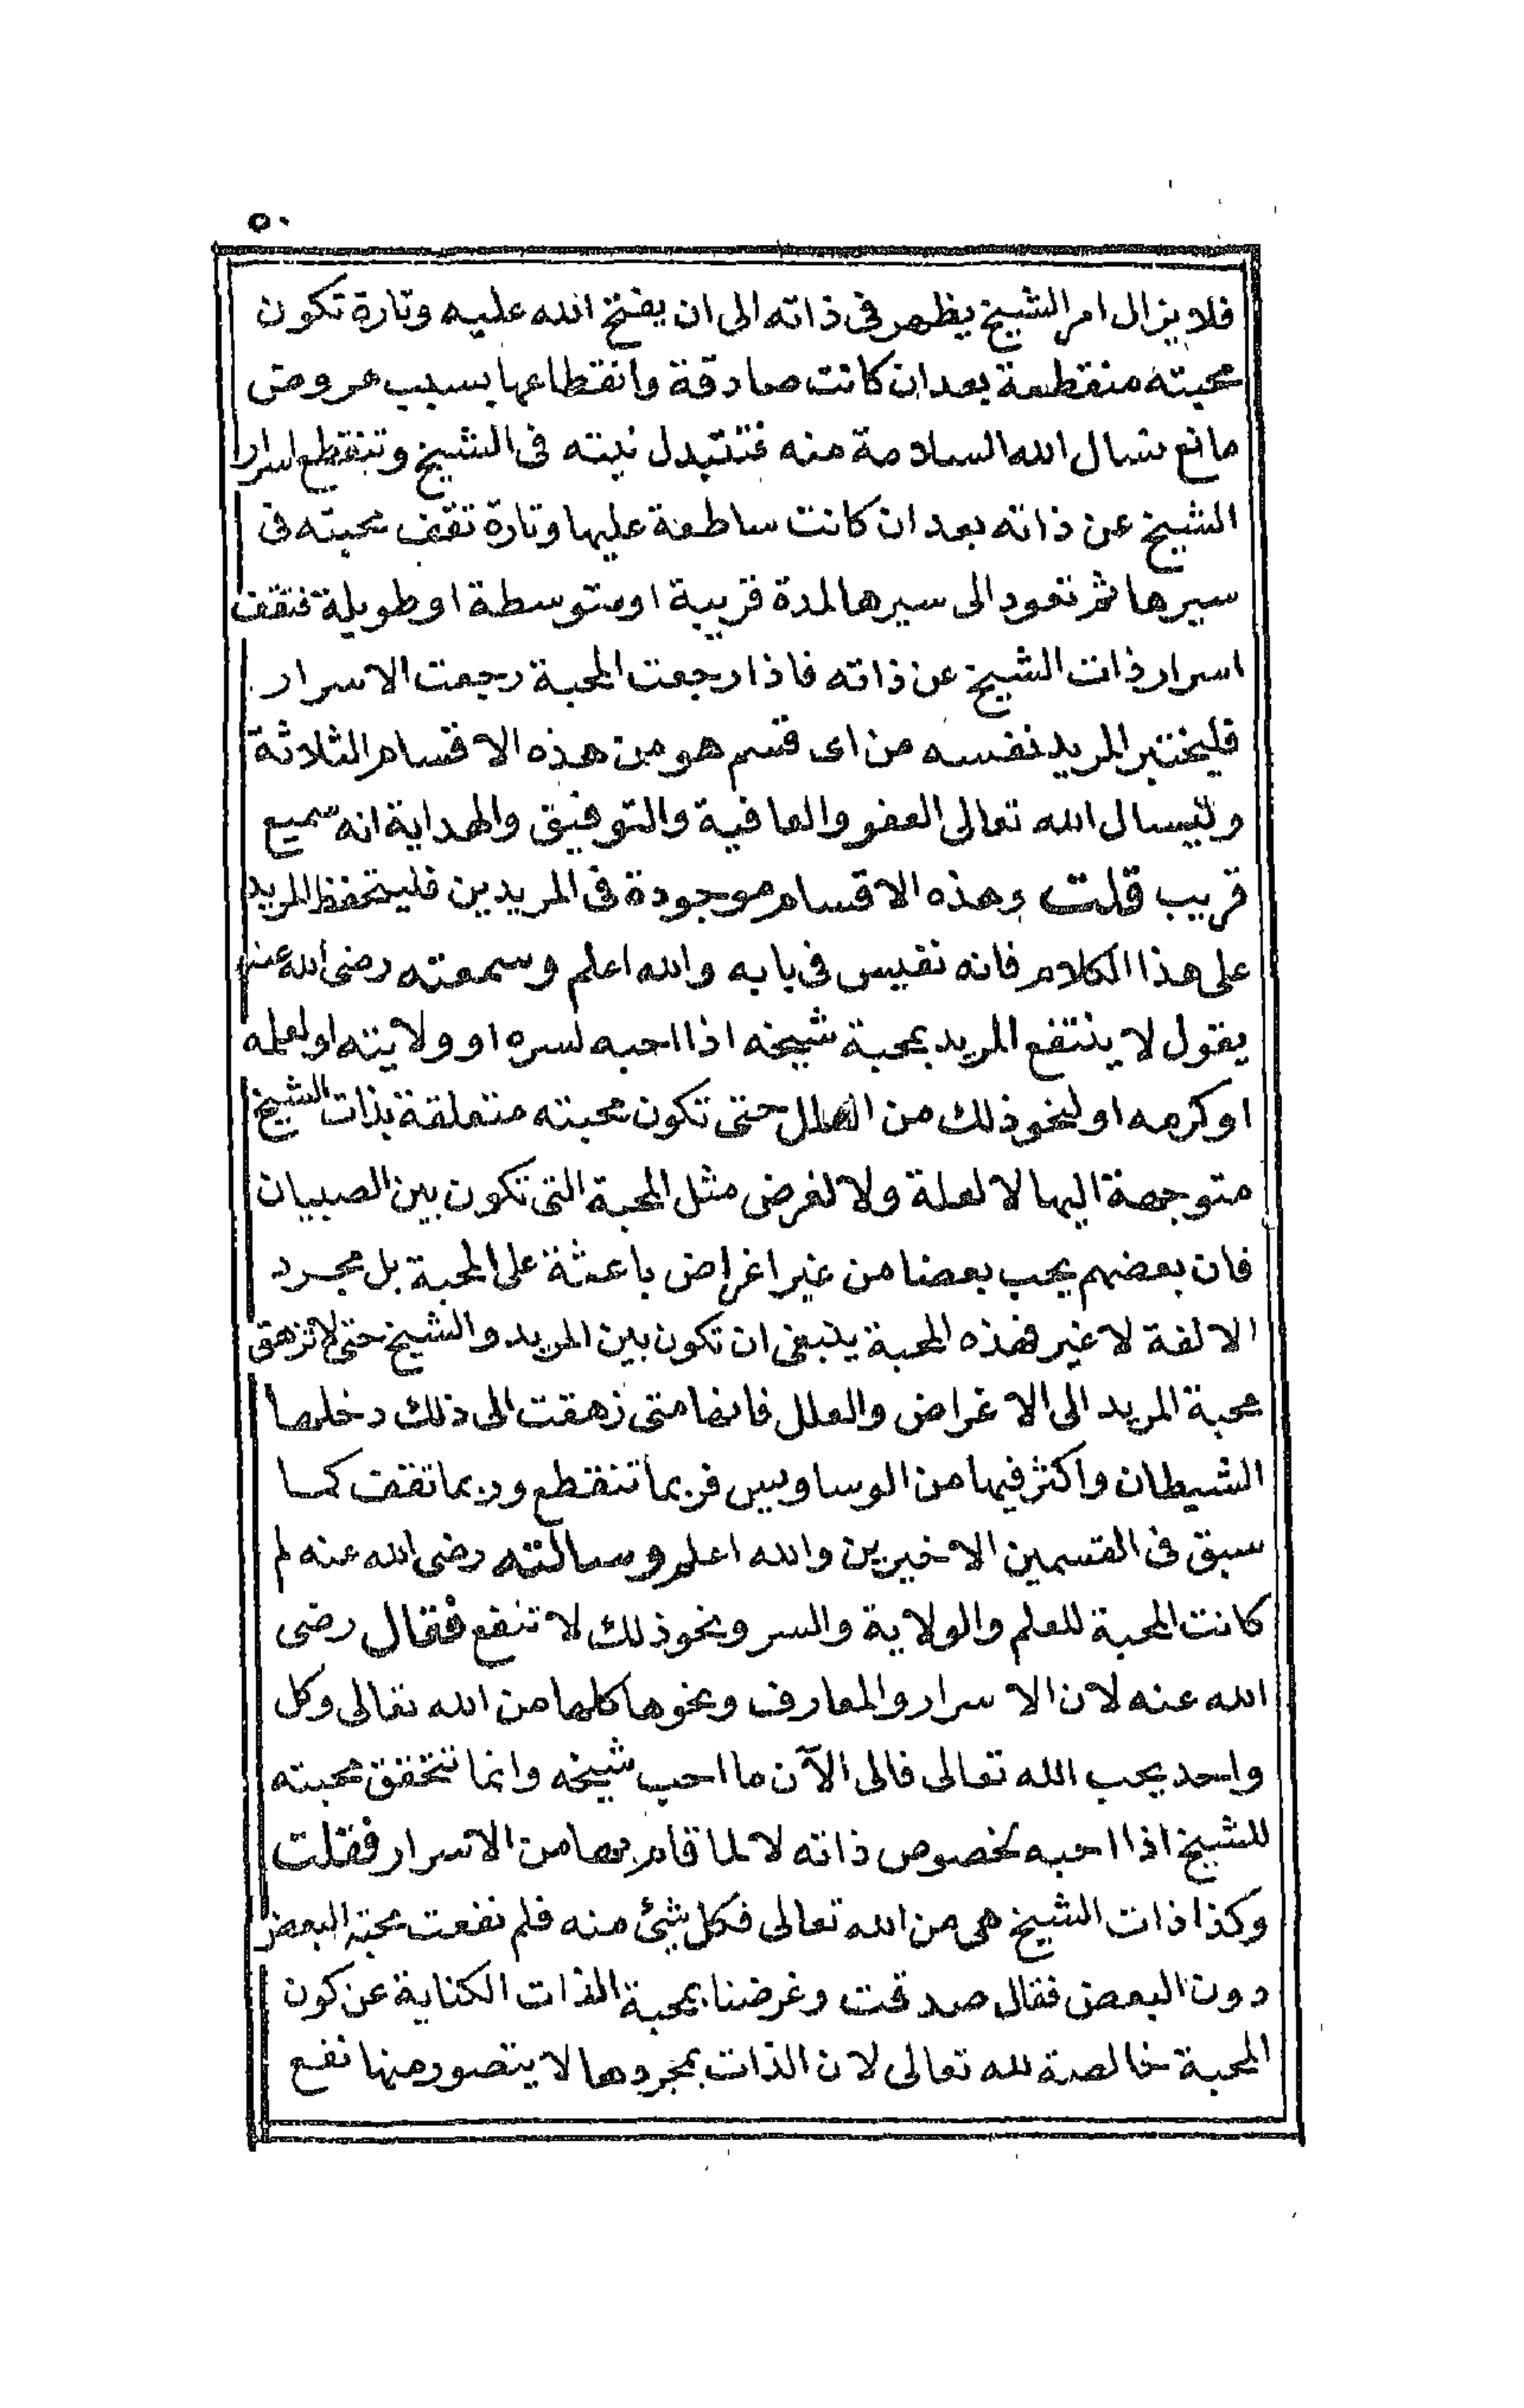 ٥٠
فلا يزال امر الشيخ يظهر فى ذاته الى ان يفتح الله عليه وتارة تكون
محبته منقطعة بعد ان كانت صادقة وانقطاعها بسبب عروض
مانع نسال الله السلامة منه فتتبدل نيته فى الشيخ وتنقطع اسرار
الشيخ عن ذاته بعد ان كانت ساطعة عليها وتارة تقف محبته فى
سيرها ثم تعود الى سيرها لمدة قريبة او متوسطة او طويلة فتقف
اسرار ذات الشيخ عن ذاته فاذا رجعت المحبة رجعت الاسرار
فليختبر المريد نفسه من اى قسم هو من هذه الاقسام الثلاثة
وليسال الله تعالى العفو والعافية والتوفيق والهداية انه سميع
قريب قلت وهذه الاقسام موجودة فى المريدين فليتحفظ المريد
على هذا الكلام فانه نفيس فى بابه والله اعلم وسمعته رضى الله عنه
يقول لا ينتفع المريد بمحبة شيخه اذا احبه لسره او ولايته او لعلمه
او كرمه او لنحو ذلك من العلل حتى تكون محبته متعلقة بذات الشيخ
متوجهة اليها لا لعلة ولا لغرض مثل المحبة التى تكون بين الصبيان
فان بعضهم يحب بعضا من غير اغراض باعثة على المحبة بل مجرد
الالفة لا غير فهذه المحبة ينبغى ان تكون بين المريد والشيخ حتى لا تزهق
محبة المريد الى الاغراض والعلل فانها متى زهقت الى ذلك دخلها
الشيطان واكثر فيها من الوساويس فربما تنقطع وربما تقف كما
سبق فى القسمين الاخيرين والله اعلم وسالته رضى الله عنه لم
كانت المحبة للعلم والولاية والسر ونحو ذلك لا تنفع فقال رضى
الله عنه لان الاسرار والمعارف ونحوها كلها من الله تعالى وكل
واحد يحب الله تعالى فالى الآن ما احب شيخه وانما تتحقق محبته
للشيخ اذا احبه لخصوص ذاته لا لما قام بها من الاسرار فقلت
وكذا ذات الشيخ هى من الله تعالى فكل شئ منه فلم نفعت محبة البعض
دون البعض فقال صدقت وغرضنا بمحبة الذات الكناية عن كون
المحبة خالصة لله تعالى لان الذات بمجردها لا يتصور منها نفع